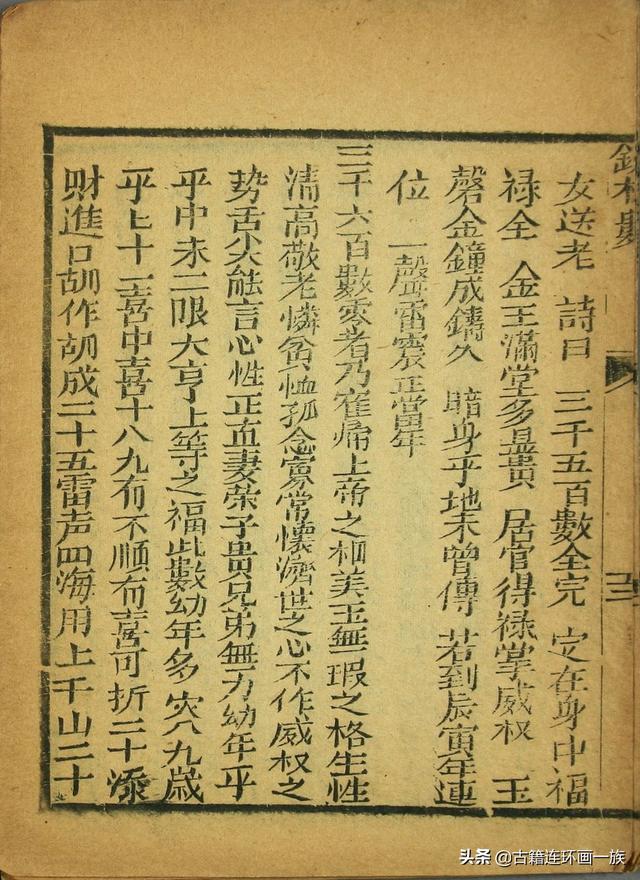 女送老 詩曰 三千五百數全完 定在身中福
祿全 金玉滿堂多显贵 居官得禄掌威权 玉
磬金鐘成鑄久 暗身乎地未曾傳 若到辰寅年連
位 一聲雷震正當年
三千六百數零者乃寉帰上帝之相美玉無瑕之格生性
清高敬老憐貧恤孤念寡常懷濟世之心不作威权之
势舌尖能言心性正直妻荣子贵兄弟無力幼年乎
乎中未二限大亨上等之福此數幼年多灾八九歲
乎七十一喜中喜十八九有不顺有喜可折二十添
财進口胡作胡成二十五雷声四海用上千山二十
头条 @古籍连环画一族